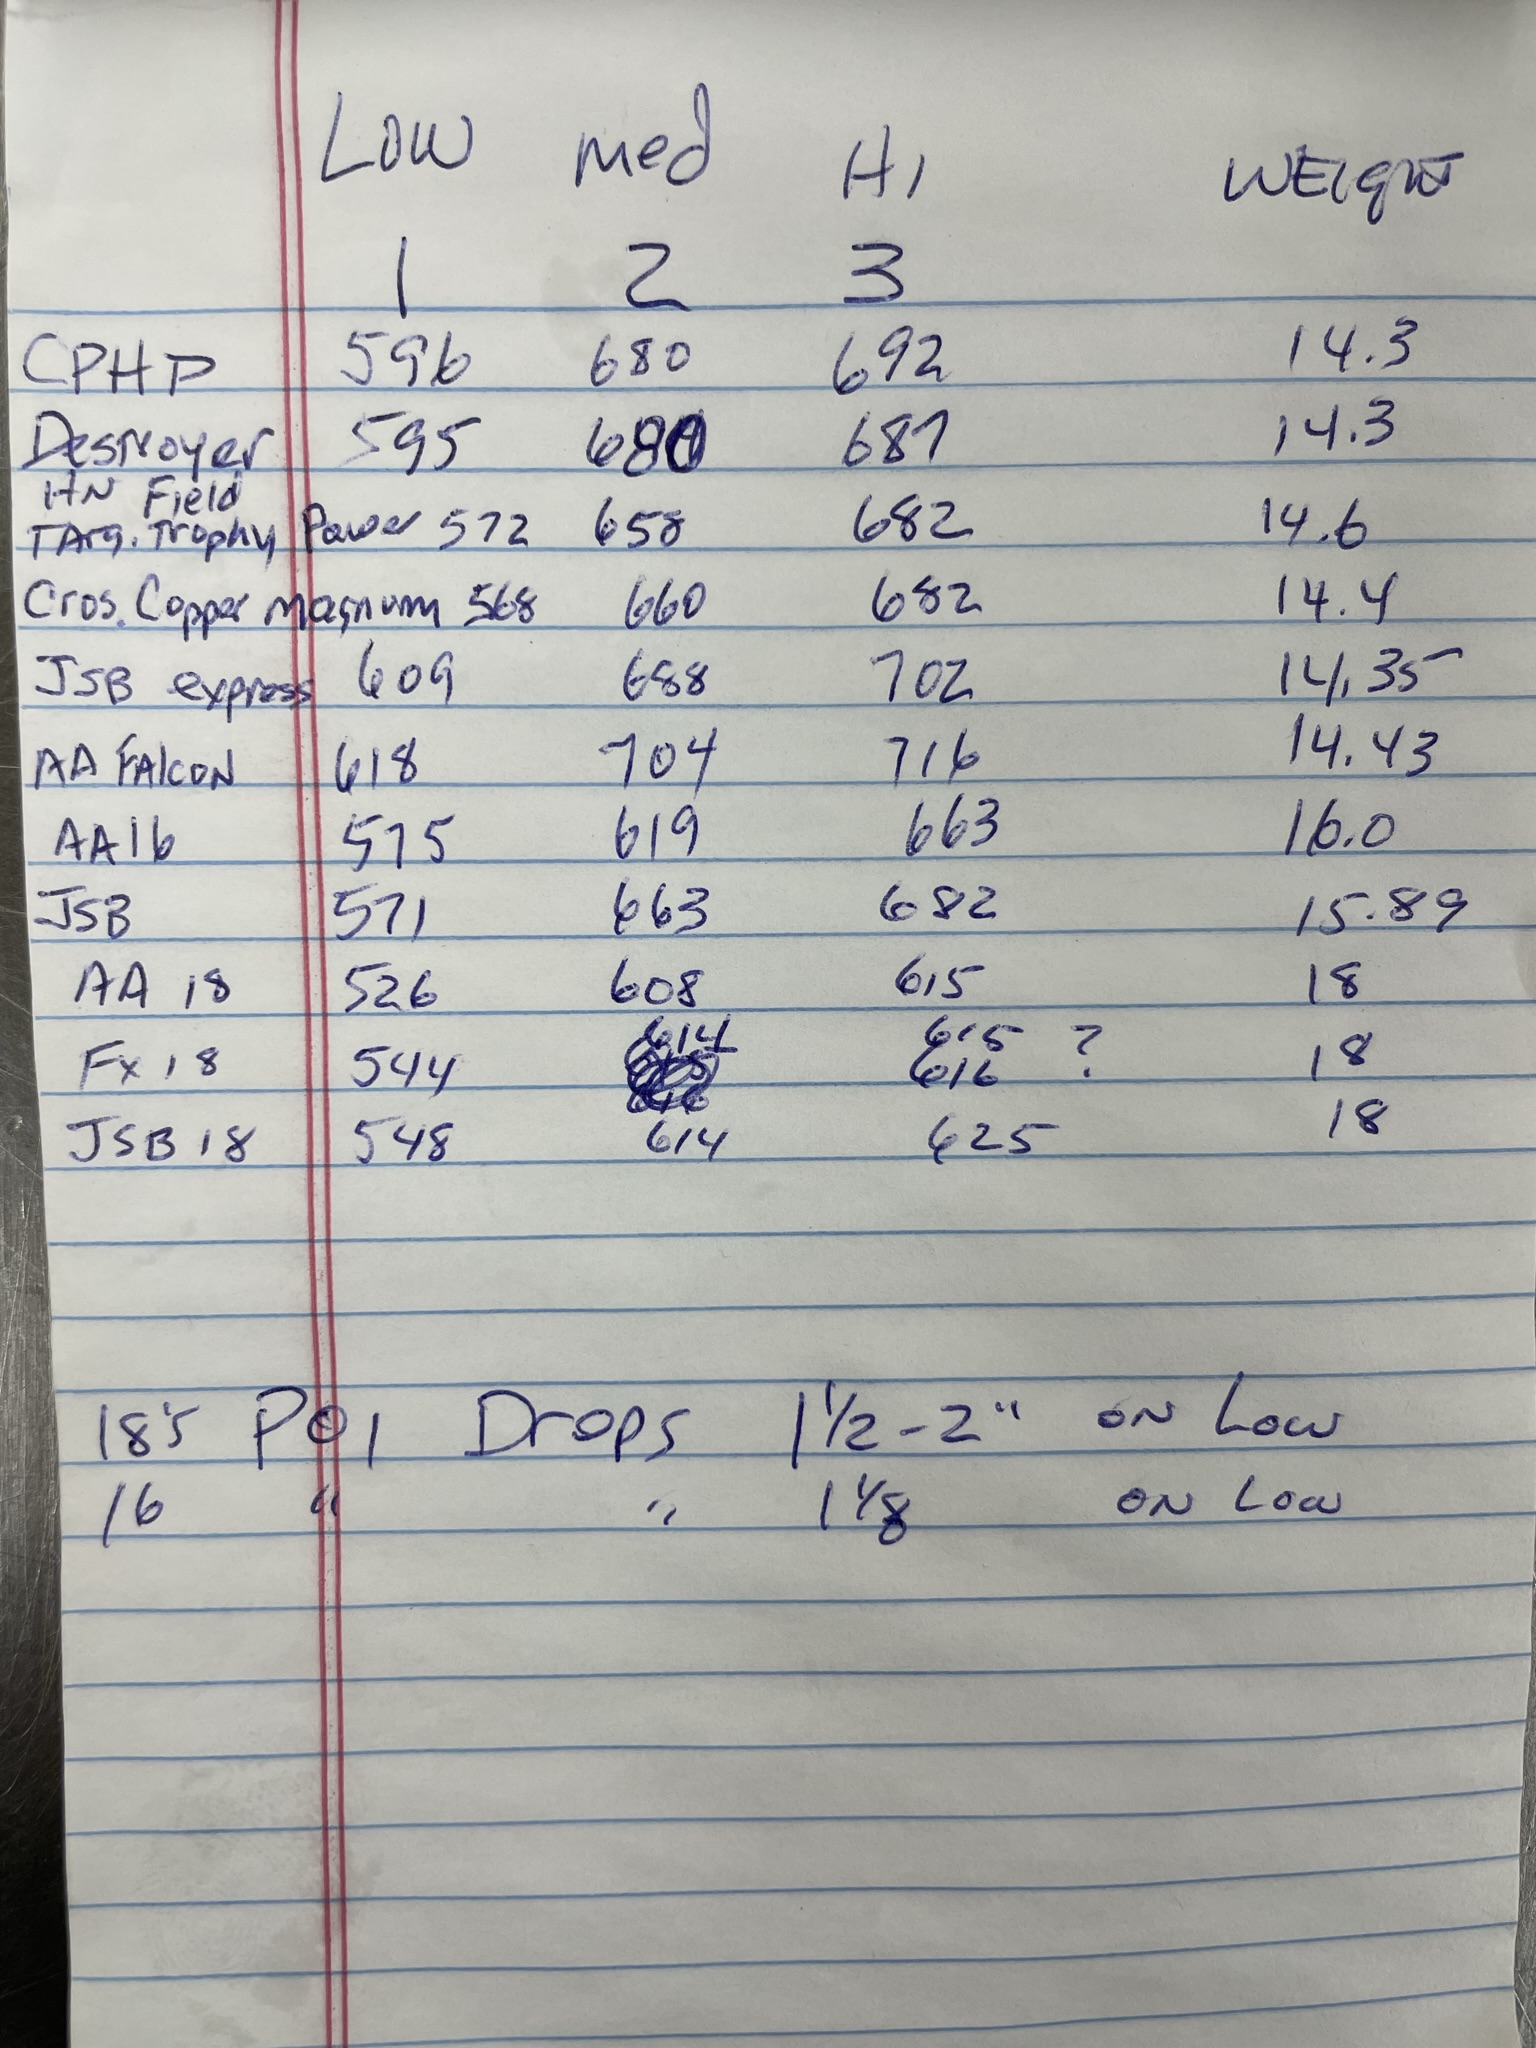 LOW med HI WEIGHT
1 2 3
CPHP 596 680 692 14.3
Destroyer 595 680 687 14.3
HN Field
TArg. Trophy Power 572 658 682 14.6
Cros. Copper magnum 568 660 682 14.4
JSB express 609 688 702 14.35
AA FALCON 618 704 716 14.43
AA16 575 619 663 16.0
JSB 571 663 682 15.89
AA 18 526 608 615 18
614 615 ?
Fx 18 544 616 18
JSB 18 548 614 625 18
18's POI Drops 1 1/2 - 2" ON Low
16 " " 1 1/8 ON Low